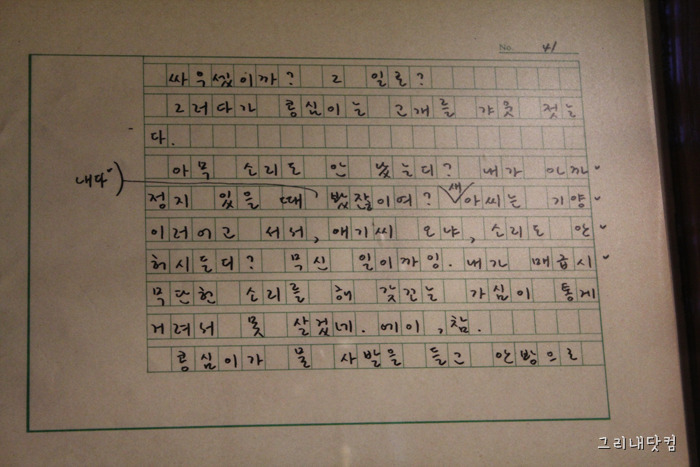 No. 41
싸우셌이까? 그 일로?
그러다가 콩심이는 고개를 갸웃 젓는
다.
소리도 안 났는디? 내가 아까
내다
정지 있을 때 밨잖이여? 새아씨는 기양
이러어고 서서, 애기씨 오냐, 소리도 안
허시든디? 일이까잉. 내가 매급시
소리를 해 갖꼬는 가심이 통게
거려서 못 살겄네. 에이, 참.
콩심이가 물 사발을 들고 안방으로
그리내닷컴